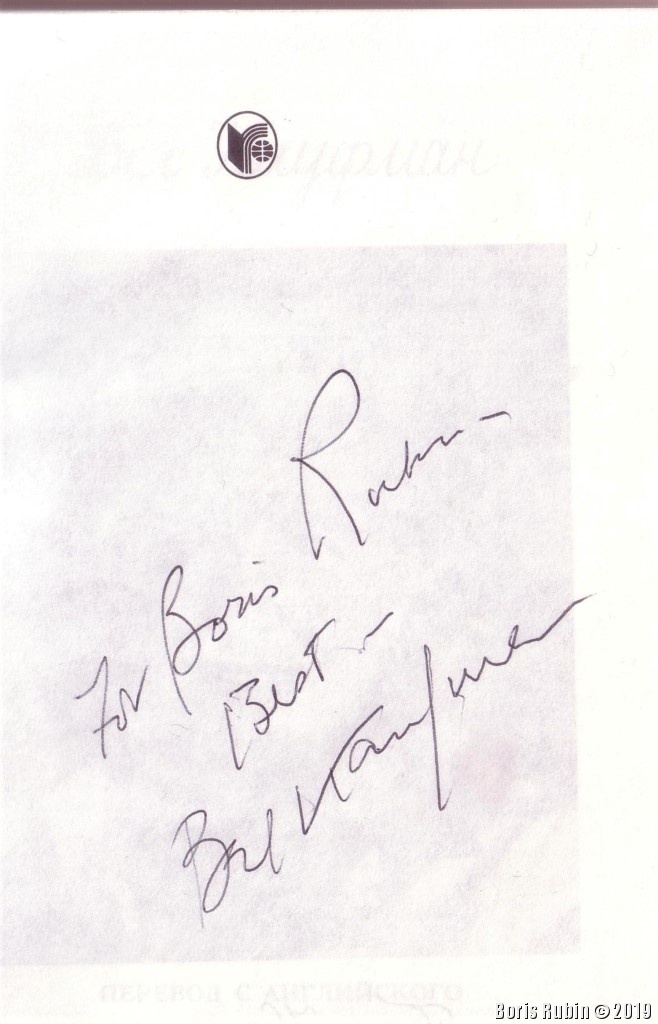 For Boris Rubin –
Best –
Bel Kaufman
ПЕРЕВОД С АНГЛИЙСКОГО
Boris Rubin © 2019